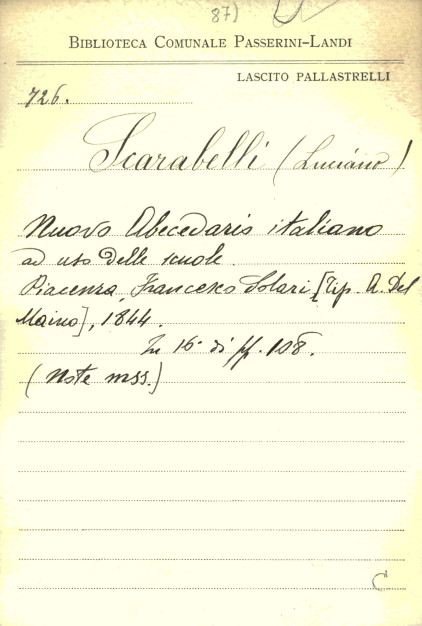 87)
BIBLIOTECA COMUNALE PASSERINI-LANDI
LASCITO PALLASTRELLI
726.
Scarabelli (Luciano)
Nuovo Abecedario italiano
ad uso delle scuole.
Piacenza, Francesco Solari [Tip. A. Del
Maino], 1844.
In 16° di pp. 108.
(Note mss.)
C